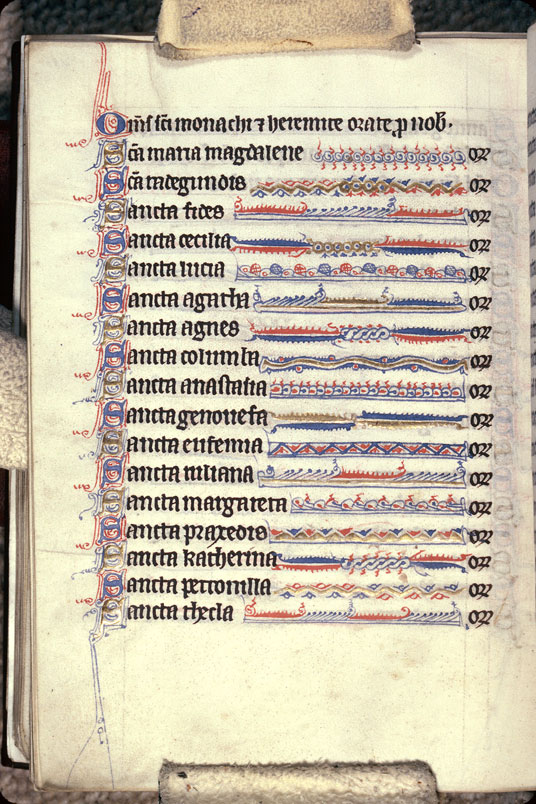 Om̄s sc̄i monachi ⁊ heremite orate ꝓ nob.
Sc̄a maria magdalene or
Sc̄a radegundis or
Sancta fides or
Sancta cecilia or
Sancta lucia or
Sancta agatha or
Sancta agnes or
Sancta columba or
Sancta anastasia or
Sancta genouefa or
Sancta eufemia or
Sancta iuliana or
Sancta margareta or
Sancta praxedis or
Sancta katherina or
Sancta petronilla or
Sancta thecla or